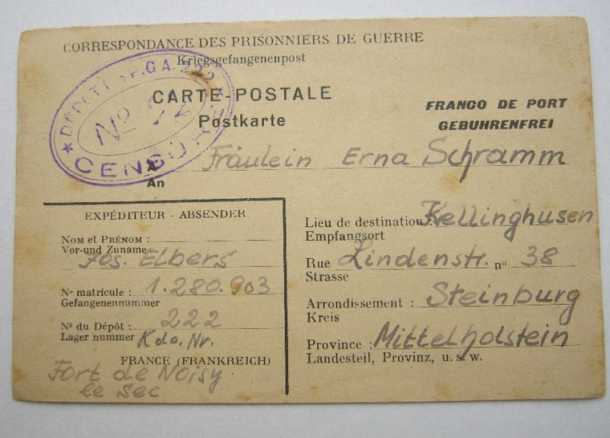 CORRESPONDANCE DES PRISONNIERS DE GUERRE
Kriegsgefangenenpost
DÉPÔT P.G.A. 222
No 22
CENSURE
CARTE-POSTALE
Postkarte
FRANCO DE PORT
GEBUHRENFREI
A
An
Fräulein Erna Schramm
EXPÉDITEUR - ABSENDER
NOM et PRÉNOM :
Vor-und Zuname
Jos. Elbers
No matricule : 1.280.903
Gefangenennummer
No du Dépôt : 222
Lager nummer Kdo. Nr.
FRANCE (FRANKREICH)
Fort de Noisy
le sec
Lieu de destination : Kellinghusen
Empfangsort
Rue Lindenstr. no 38
Strasse
Arrondissement : Steinburg
Kreis
Province : Mittelholstein
Landesteil, Provinz, u. s. w.